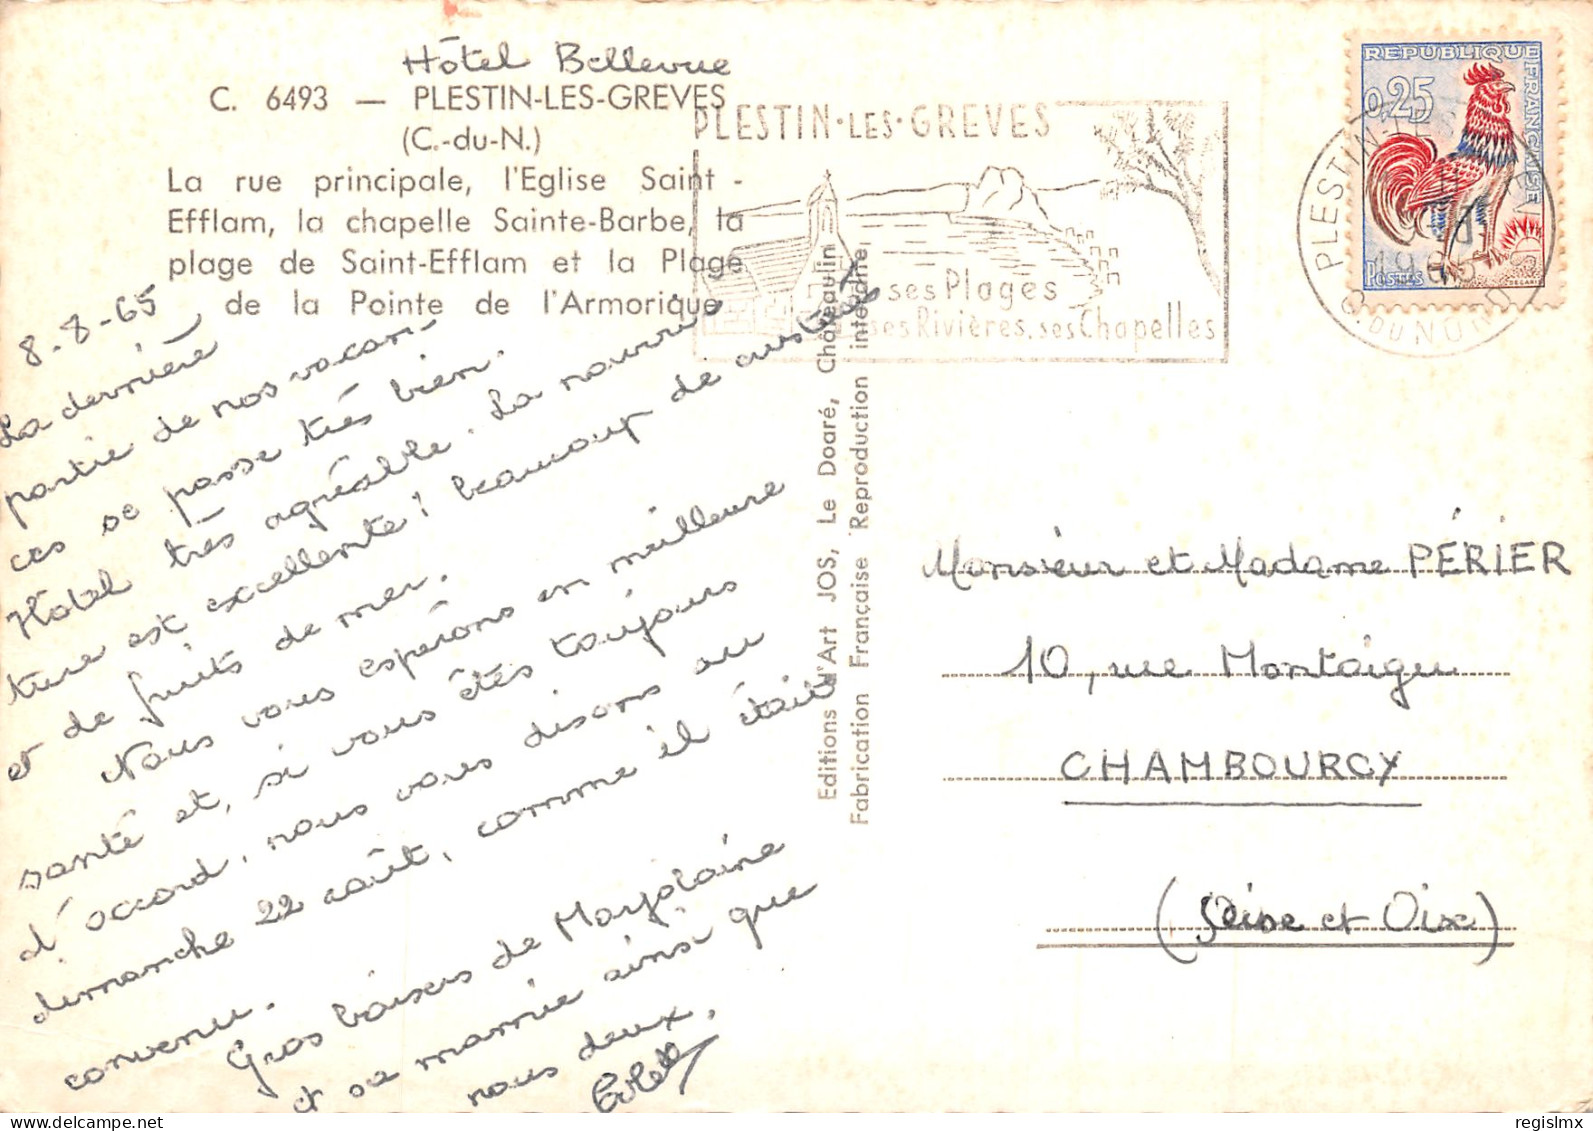 Hôtel Bellevue
C. 6493 — PLESTIN-LES-GREVES
(C.-du-N.)
La rue principale, l'Eglise Saint -
Efflam, la chapelle Sainte-Barbe, la
plage de Saint-Efflam et la Plage
de la Pointe de l'Armorique
PLESTIN·LES·GREVES
ses Plages
ses Rivières, ses Chapelles
REPUBLIQUE FRANÇAISE
0,25
POSTES
DECARIS
PLESTIN-LES-GREVES
1965
C. DU NORD
8-8-65
La dernière
partie de nos vacan-
ces se passe très bien.
Hôtel très agréable. La nourri
ture est excellente! beaucoup de crustacés
et de fruits de mer.
Nous vous espérons en meilleure
santé et, si vous êtes toujours
d'accord, nous vous disons au
dimanche 22 août, comme il était
convenu.
Gros baisers de Marjolaine
et sa mamie ainsi que
nous deux.
Editions d'Art JOS, Le Doaré, Châteaulin
Fabrication Française Reproduction interdite
Monsieur et Madame PÉRIER
10, rue Montaigu
CHAMBOURCY
(Seine et Oise)
© regislmx